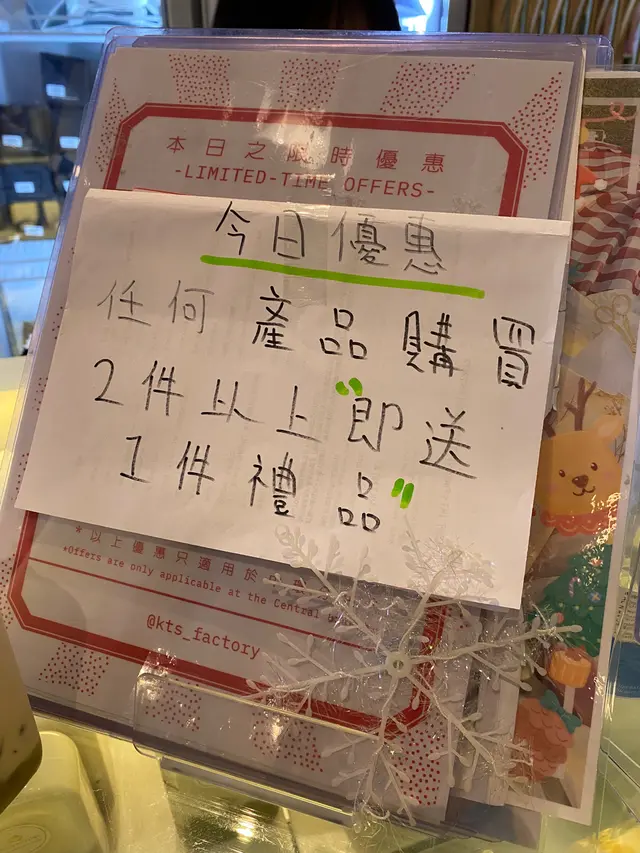 本日之限時優惠
-LIMITED-TIME OFFERS-
今日優惠
任何產品購買
2件以上"即送
1件禮品"
*以上優惠只適用於
*Offers are only applicable at the Central
@kts_factory